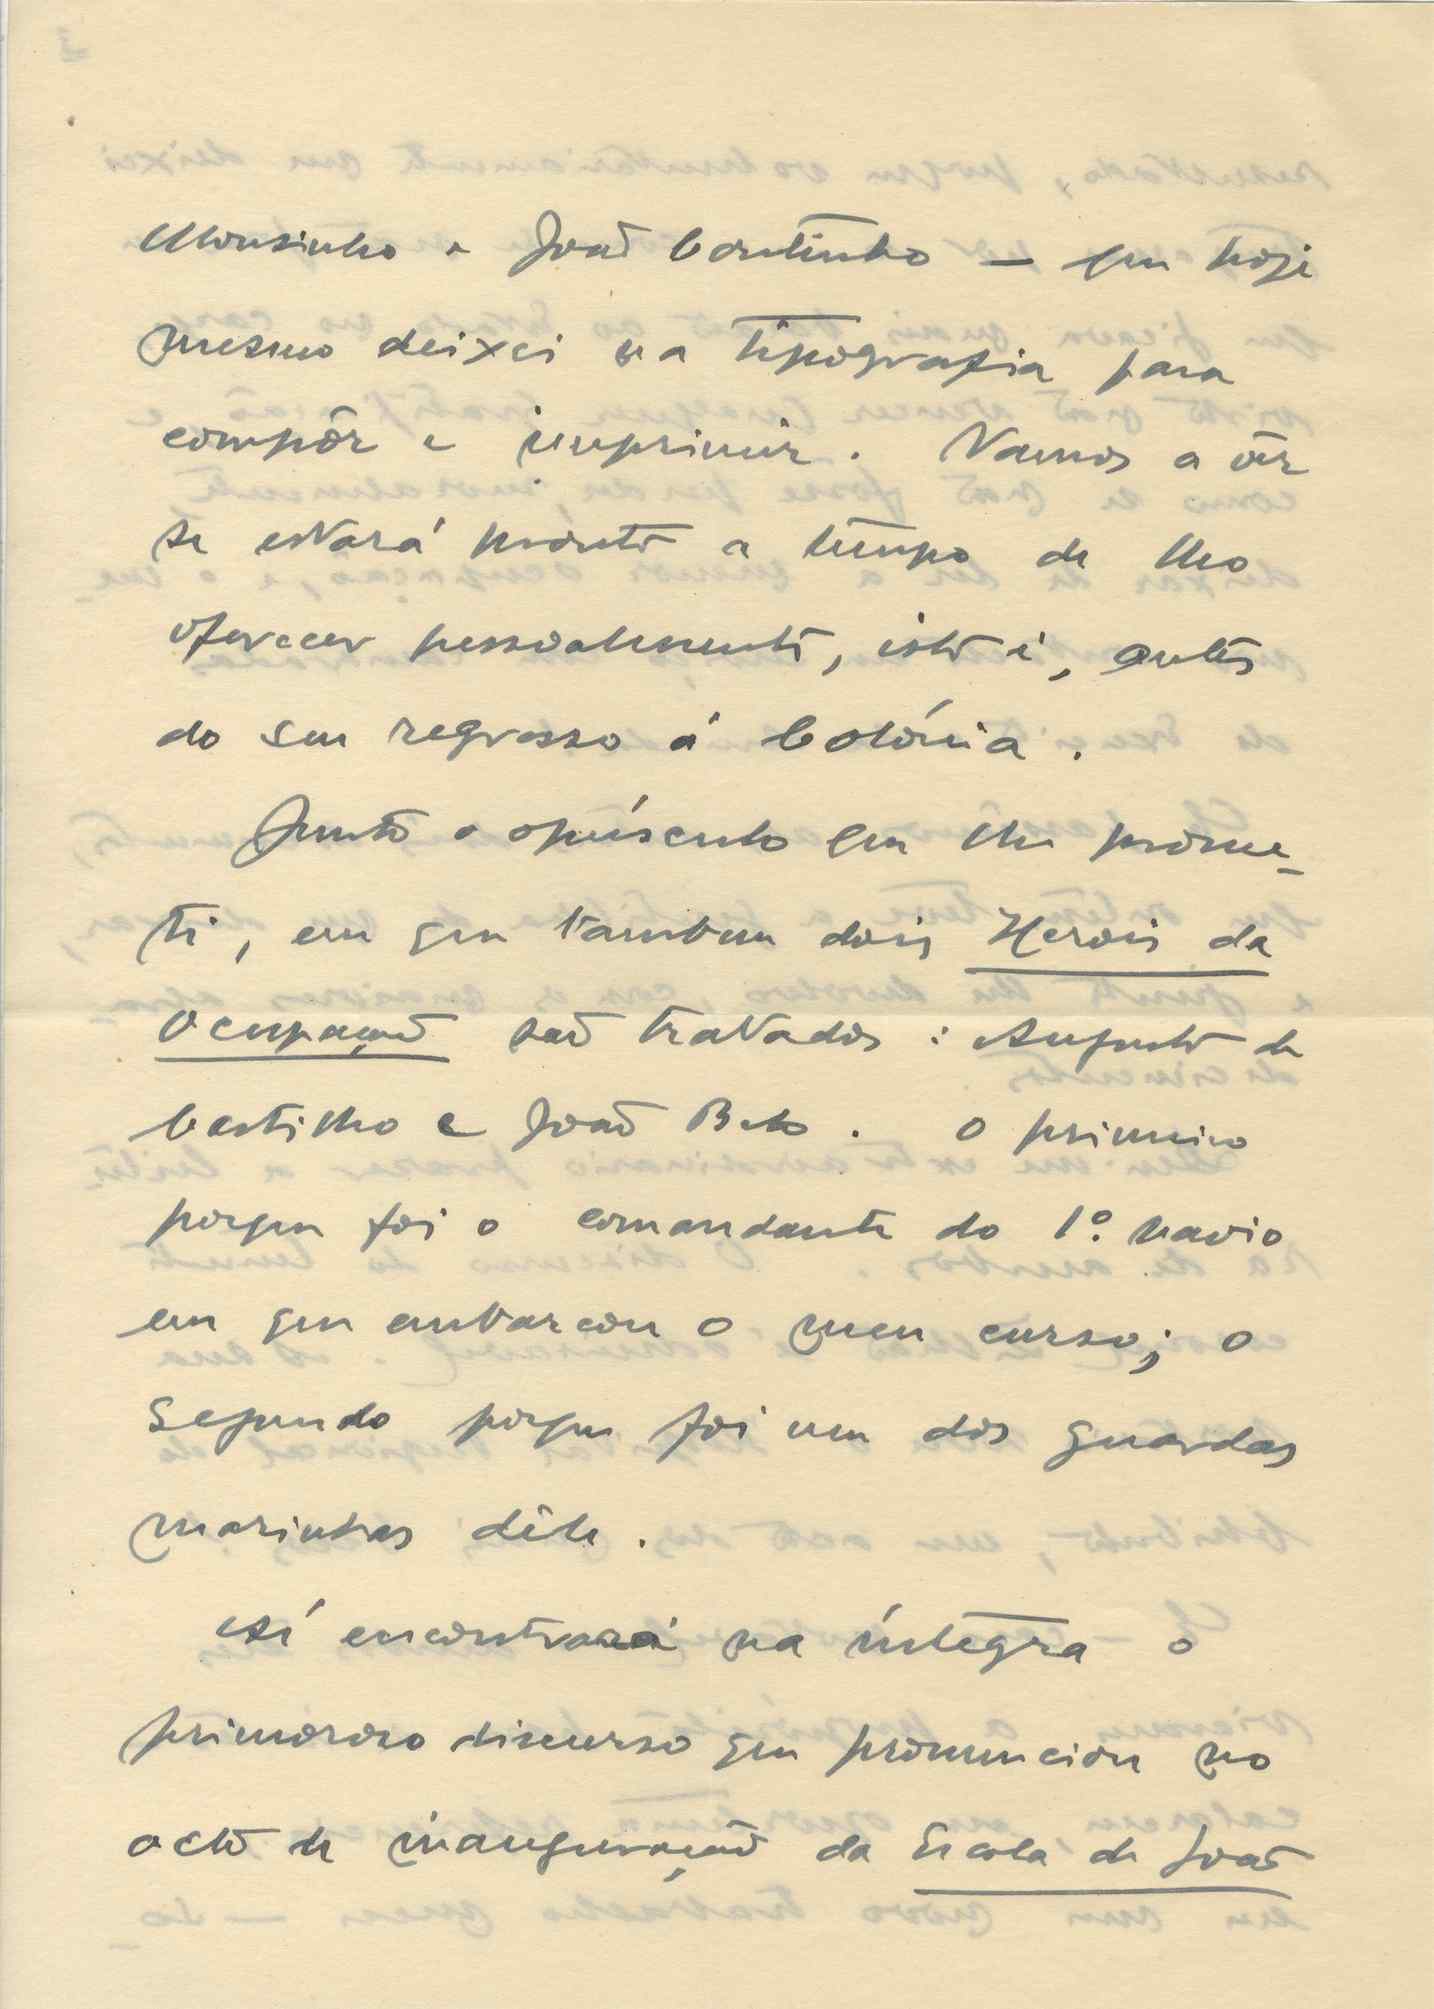 Mousinho e João Coutinho — que hoje
mesmo deixei na tipografia para
compôr e imprimir. Vamos a vêr
se estará pronto a tempo de lho
oferecer pessoalmente, isto é, antes
do seu regresso á Colónia.
Junto o opúsculo que lhe prome-
ti, em que tambem dois Herois da
Ocupação são tratados: Augusto de
Castilho e João Belo. O primeiro
porque foi o comandante do 1º. navio
em que embarcou o meu curso; o
segundo porque foi um dos guardas
marinhas dêle.
Aí encontrará na íntegra o
primoroso discurso que pronunciou no
acto de inauguração da Escola de João